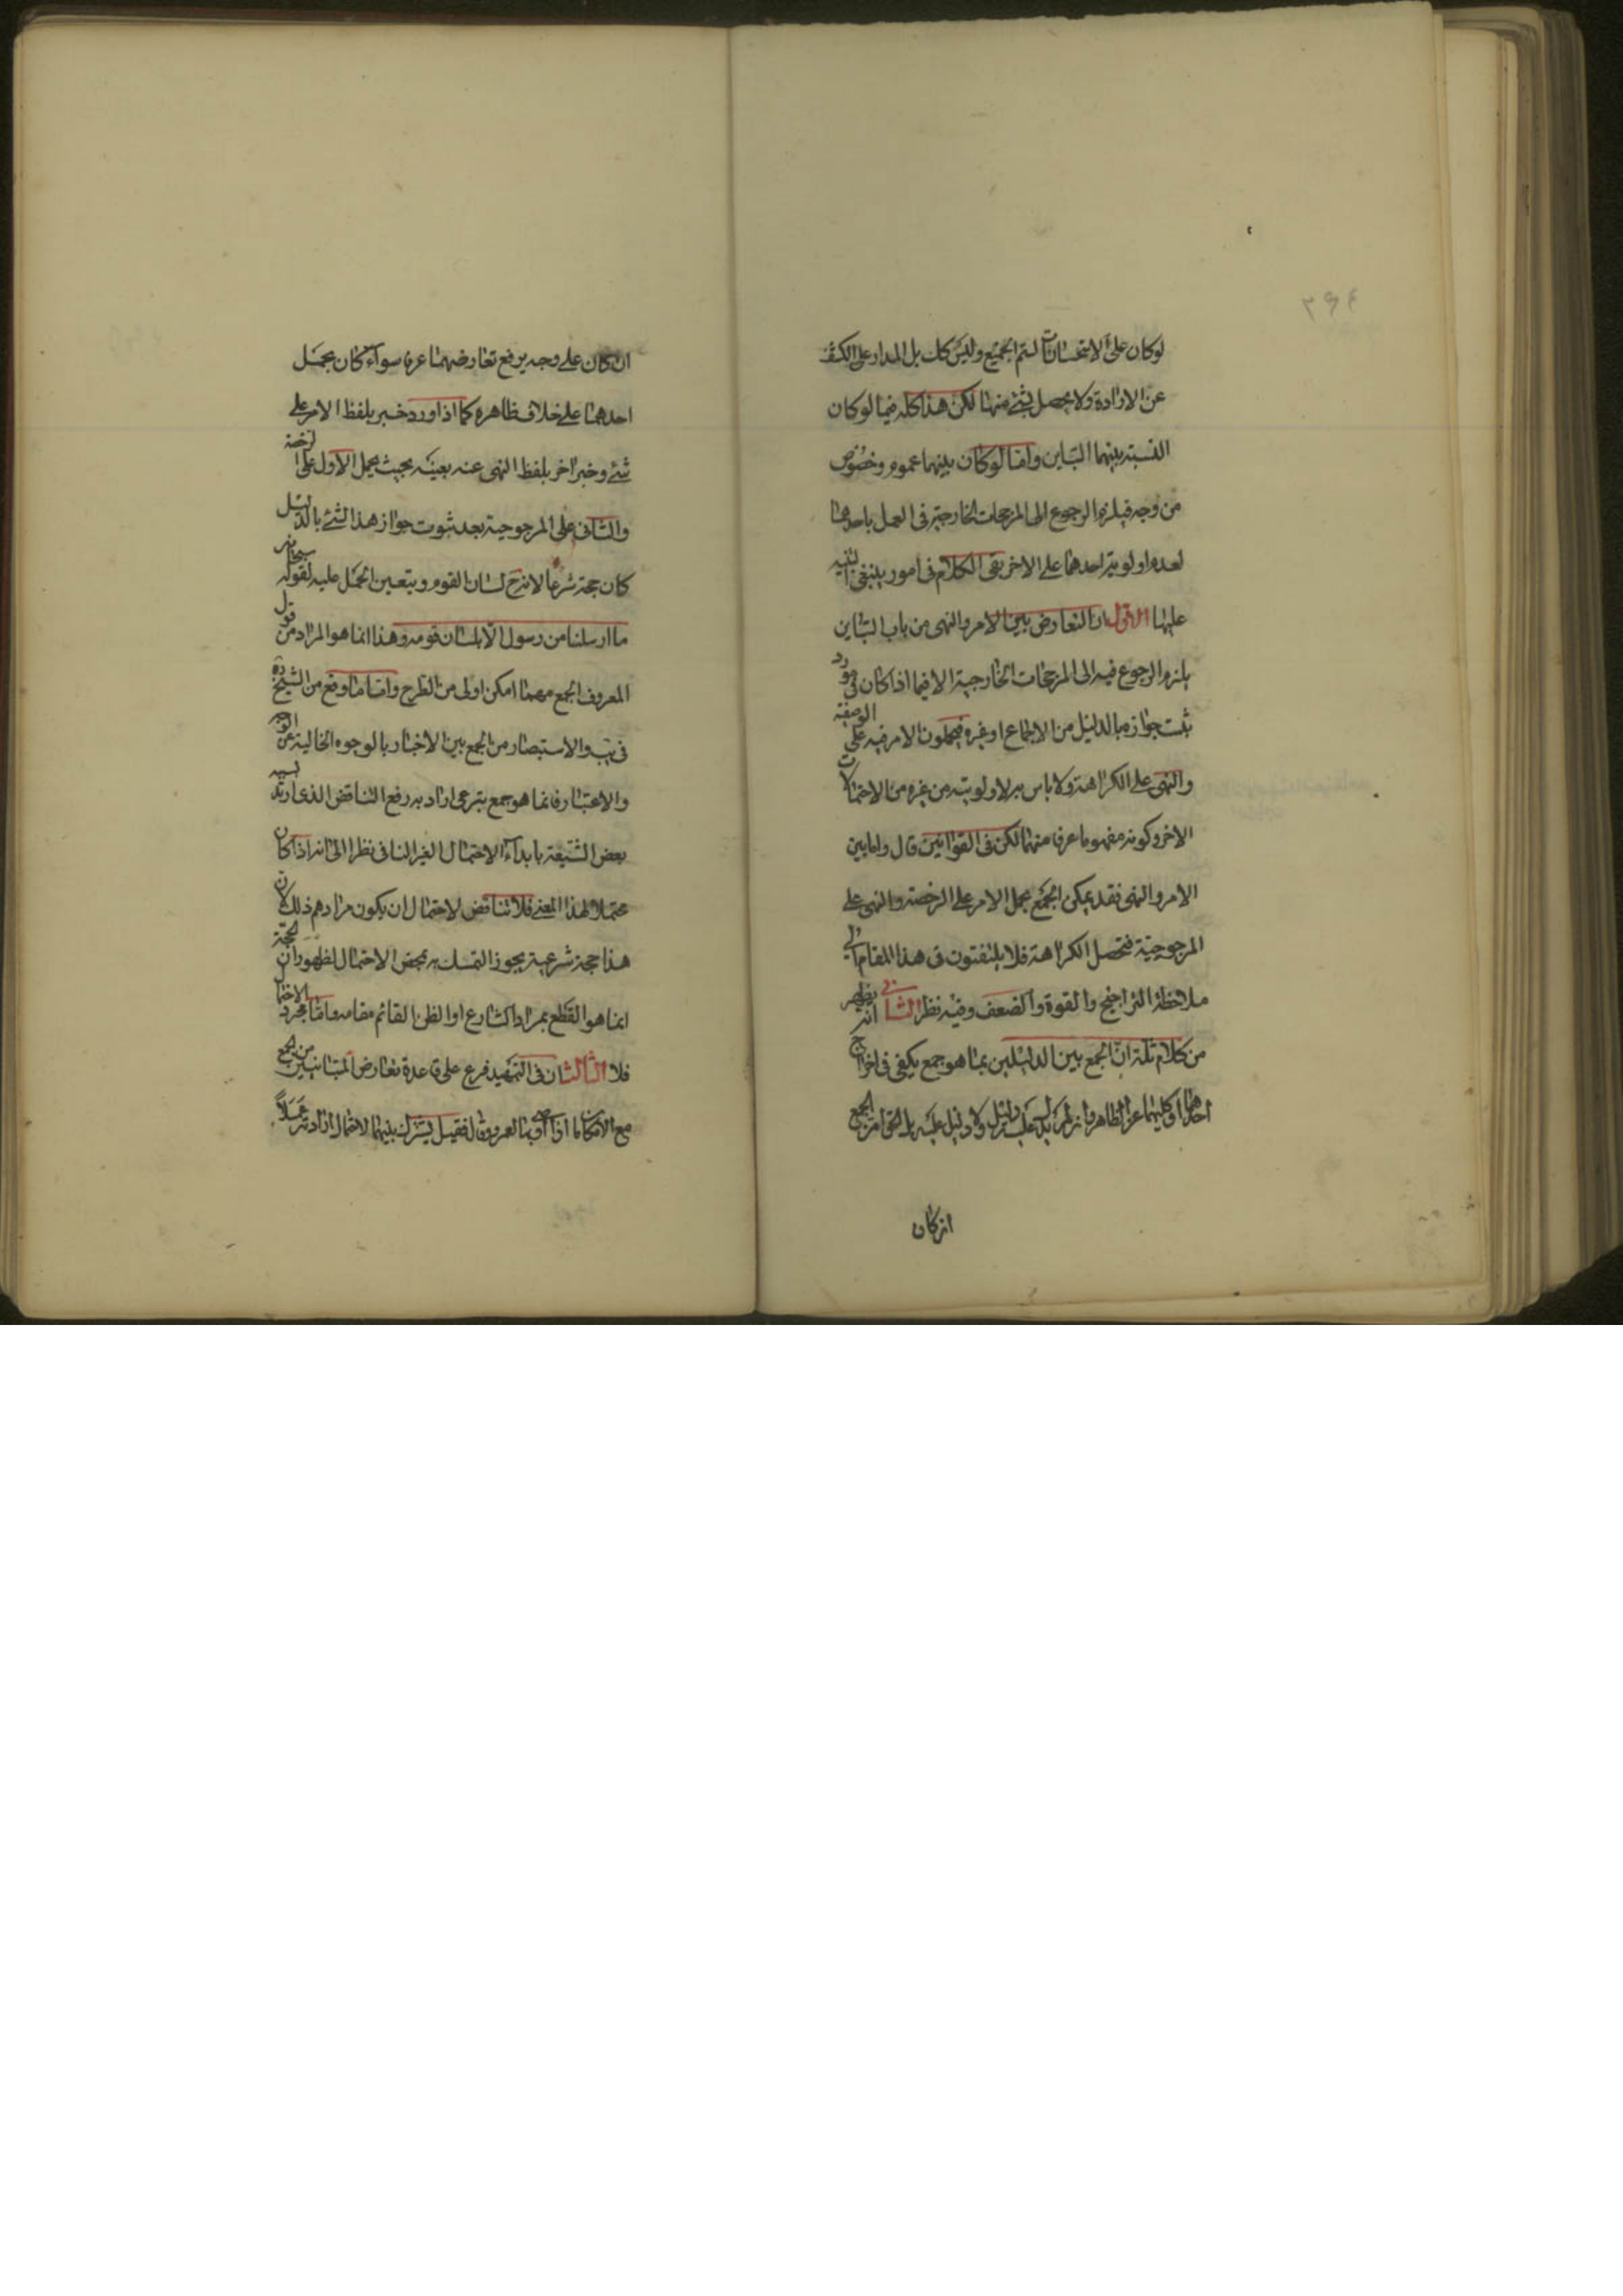 ٢٩٤
لوكان على الاستحسانات لتم الجميع وليس كك بل المدار على الكشف
عن الارادة ولا يحصل بشئ منها لكن هذا كله فيما لوكان
النسبة بينهما التباين واما لوكان بينهما عموم وخصوص
من وجه فيلزم الرجوع الى المرجحات الخارجية فى العمل باحدهما
لعدم اولوية احدهما على الاخر بقى الكلام فى امور ينبغى التنبيه
عليها الاول ان التعارض بين الامر والنهى من باب التباين
يلزم الرجوع فيه الى المرجحات الخارجية الا فيما اذا كان فى مورد
ثبت جوازه بالدليل من الاجماع او غيره فيحملون الامر فيه على الرخصة
والنهى على الكراهة ولا باس به لاولويته من غيره من الاحتمالات
الاخر وكونه مفهوما عرفا منهما لكن فى القوانين قال واما بين
الامر والنهى فقد يمكن الجمع بحمل الامر على الرخصة والنهى على
المرجوحية فتحصل الكراهة فلا يلتفتون فى هذا المقام الى
ملاحظة التراجيح والقوة والضعف وفيه نظر الثانى يظهر
من كلام ثلة ان الجمع بين الدليلين بما هو جمع يكفى فى اخراج
احدهما او كليهما عن الظاهر وان لم يدل عليه دليل ولا دليل عليه بل الحق ان الجمع
ان كان
ان كان على وجه يرفع تعارضهما عرفا سواء كان بحمل
احدهما على خلاف ظاهره كما اذا ورد خبر بلفظ الامر على
شئ وخبر اخر بلفظ النهى عنه بعينه بحيث يحمل الاول على الرخصة
والثانى على المرجوحية بعد ثبوت جواز هذا الشئ بالدليل
كان حجة شرعا لانه ح لسان القوم ويتعين الحمل عليه لقوله سبحانه
ما ارسلنا من رسول الا بلسان قومه وهذا انما هو المراد من قول
المعروف الجمع مهما امكن اولى من الطرح واما ما وقع من الشيخ ره
فى يب والاستبصار من الجمع بين الاخبار بالوجوه الخالية عن الوجه
والاعتبار فانما هو جمع تبرعى اراد به رفع التناقض الذى ارتد لسببه
بعض الشيعة بابداء الاحتمال الغير المنافى نظرا الى انه اذا كان
محتملا لهذا المعنى فلا تناقض لاحتمال ان يكون مرادهم ذلك لا ان
هذا حجة شرعية يجوز التمسك به بمحض الاحتمال لظهور ان الحجة
انما هو القطع بمراد الشارع او الظن القائم مقامه واما مجرد الاحتمال
فلا الثالث ان فى التمهيد فرع على قاعدة تعارض المتباينين من الجمع
مع الامكان ما اذا اوصى بما لعمرو قال فقيل يشترك بينهما لاحتمال ارادته عملا